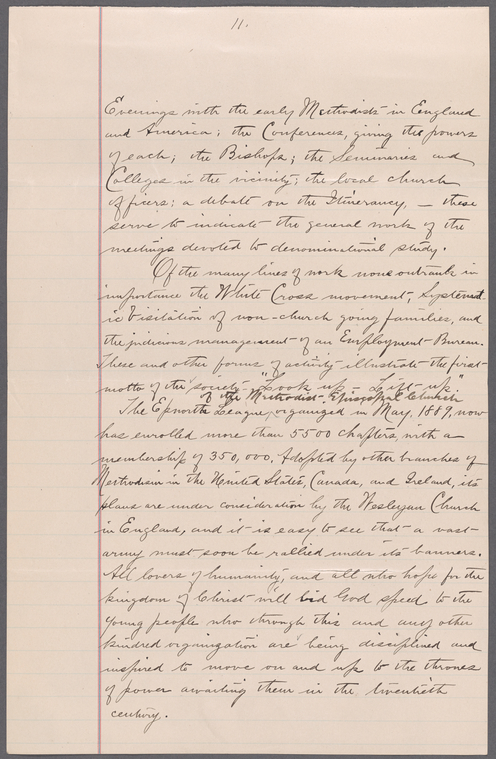 11.
Evenings with the early Methodists in England
and America; the Conferences, giving the powers
of each; the Bishops; the Seminaries and
Colleges in the vicinity; the local church
officers; a debate on the Itinerancy, — these
serve to indicate the general work of the
meetings devoted to denominational study.
Of the many lines of work none outrank in
importance the White Cross movement, Systemat-
ic Visitation of non-church going families, and
the judicious management of an Employment Bureau.
These and other forms of activity illustrate the first
motto of the society "Look up - Lift up."
of the Methodist Episcopal Church
The Epworth League, organized in May, 1889, now
has enrolled more than 5500 chapters, with a
membership of 350,000. Adopted by other branches of
Methodism in the United States, Canada, and Ireland, its
plans are under consideration by the Wesleyan Church
in England, and it is easy to see that a vast
army must soon be rallied under its banners.
All lovers of humanity, and all who hope for the
kingdom of Christ will bid God speed to the
young people who through this and any other
kindred organization are being disciplined and
inspired to move on and up to the thrones
of power awaiting them in the twentieth
century.